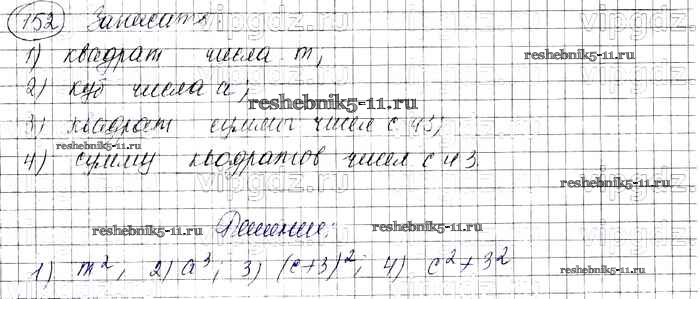 152 Запишите:
1) квадрат числа m;
2) куб числа a;
3) квадрат суммы чисел c и 3;
4) сумму квадратов чисел c и 3.
Решение:
1) m²; 2) a³; 3) (c+3)²; 4) c²+3²
vipgdz.ru
reshebnik5-11.ru
reshebnik5-11.ru
reshebnik5-11.ru
reshebnik5-11.ru
vipgdz.ru
reshebnik5-11.ru
reshebnik5-11.ru
reshebnik5-11.ru